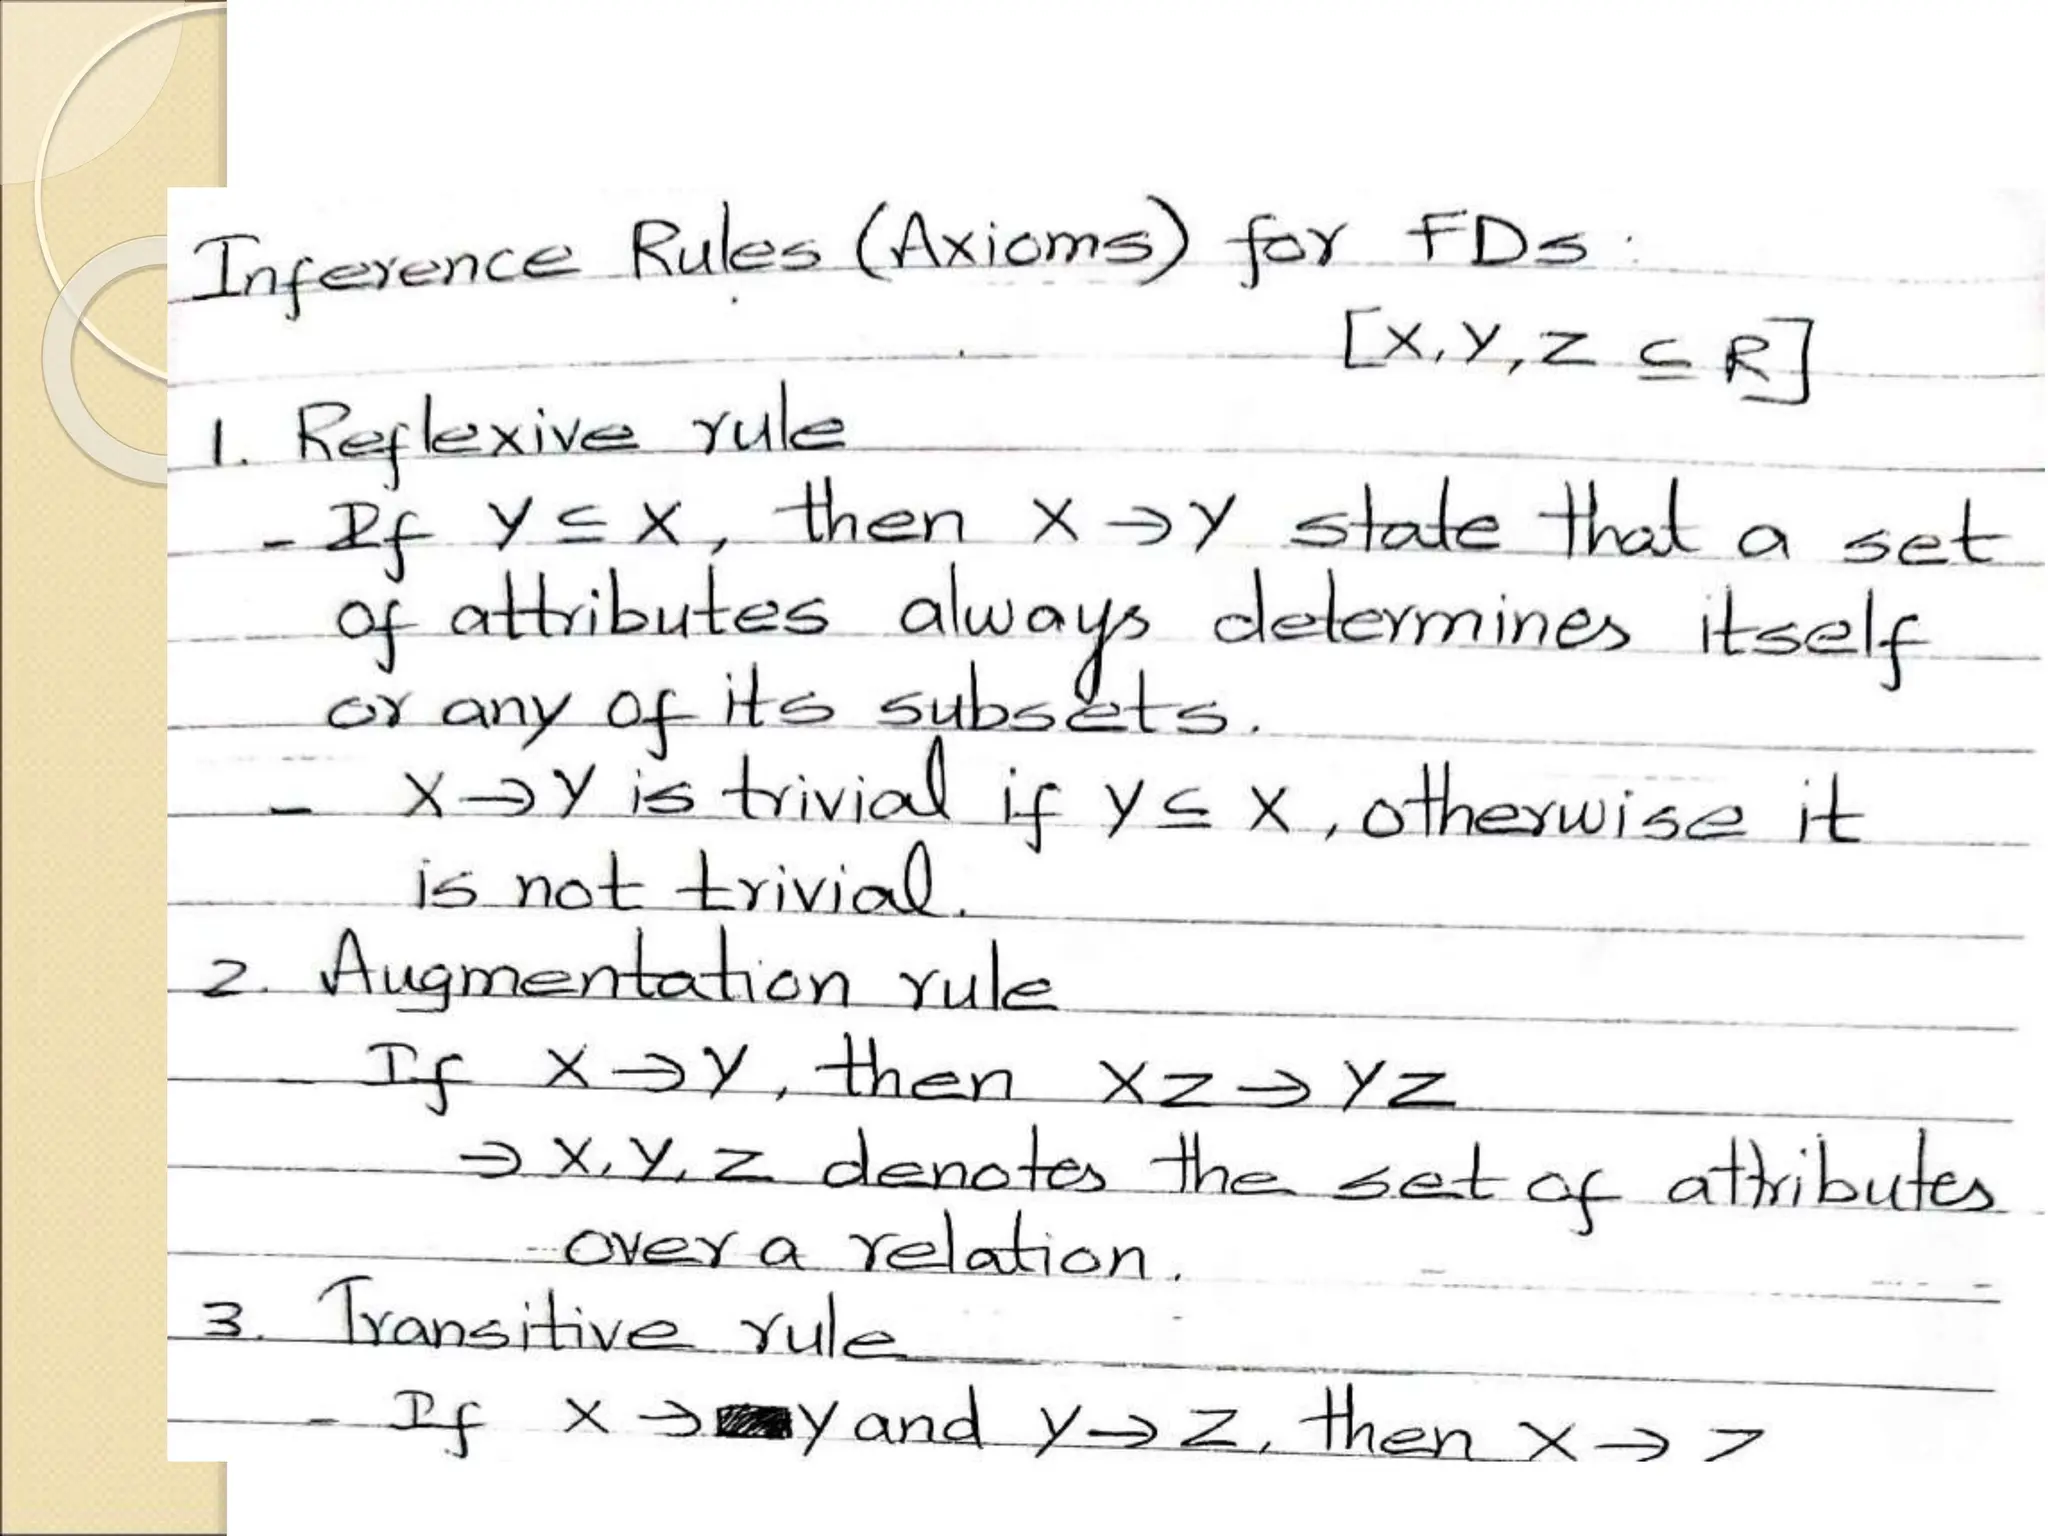 Inference Rules (Axioms) for FDs:
[X, Y, Z ⊆ R]
1. Reflexive rule
- If Y ⊆ X, then X → Y state that a set
of attributes always determines itself
or any of its subsets.
- X → Y is trivial if Y ⊆ X, otherwise it
is not trivial.
2. Augmentation rule
- If X → Y, then XZ → YZ
→ X, Y, Z denotes the set of attributes
over a relation.
3. Transitive rule
- If X → Y and Y → Z, then X → Z